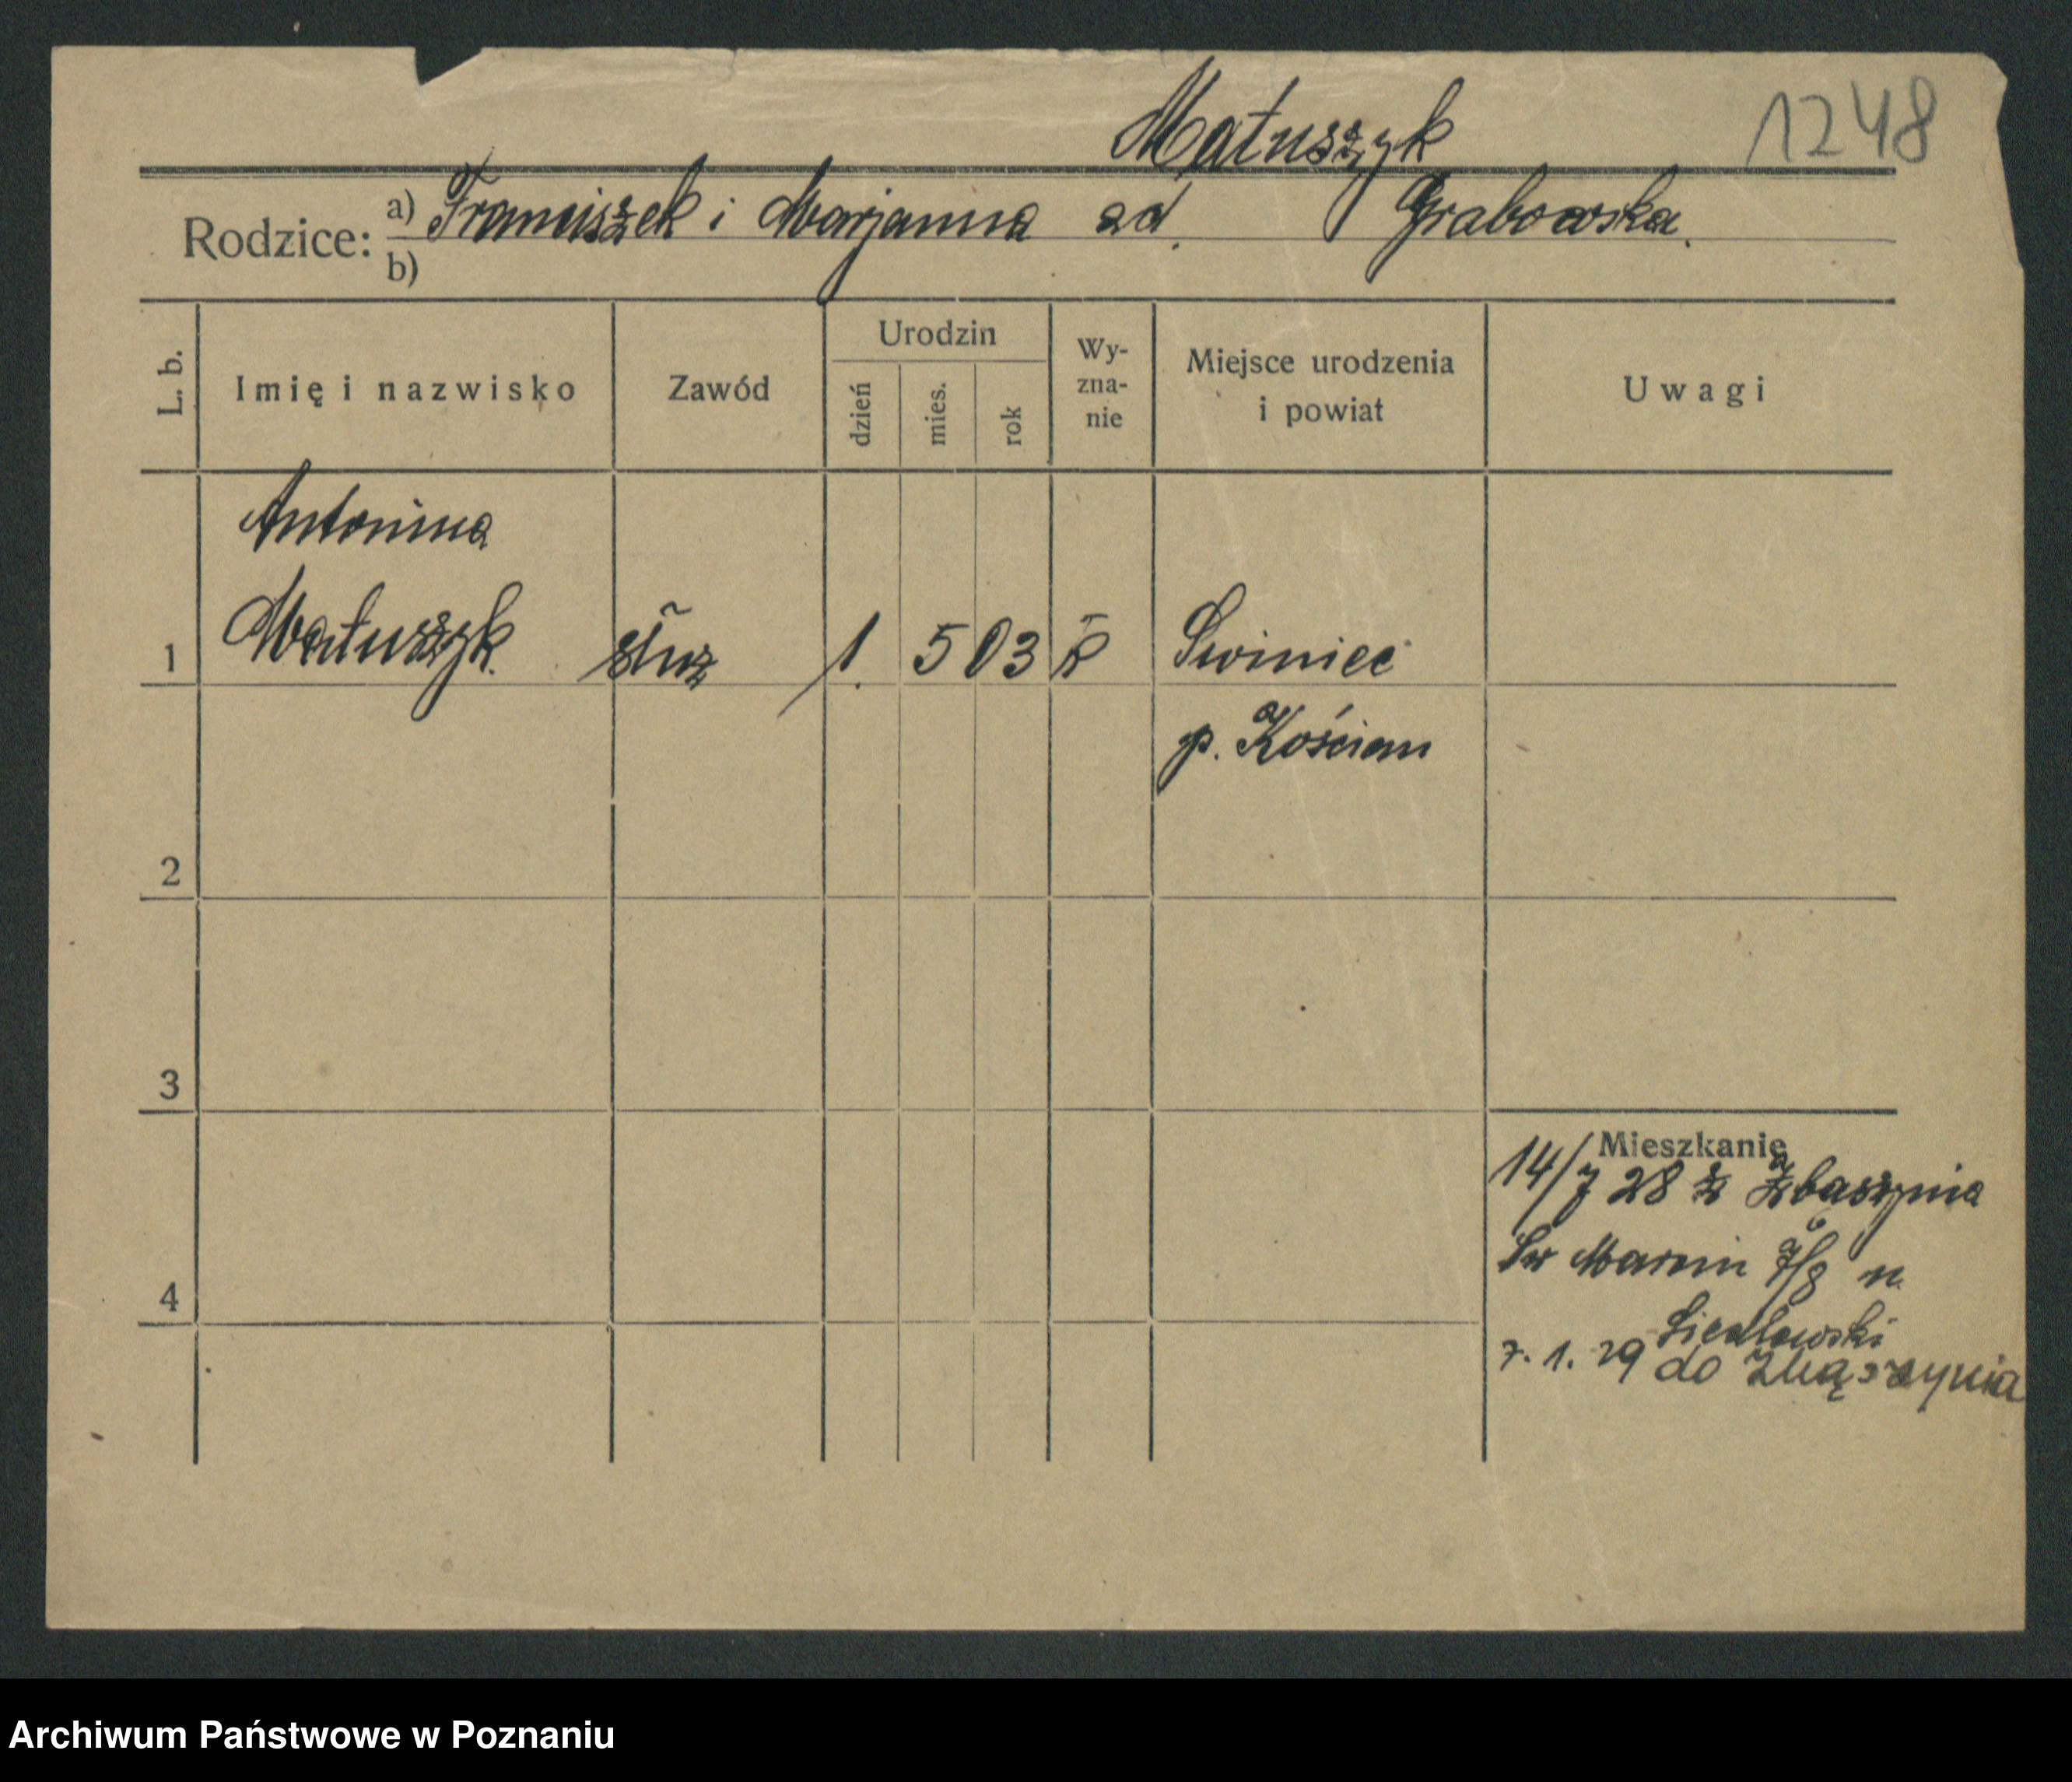 Matuszyk 1248
Rodzice: a) Franciszek i Marjanna zd. Grabowska.
b)
L. b. Imię i nazwisko Zawód Urodzin Wy-
zna-
nie Miejsce urodzenia
i powiat Uwagi
dzień mies. rok
Antonina
1 Matuszyk. służ 1. 5 03 k Swiniec
p. Kościan
2
3
Mieszkanie
14/7 28 z Zbaszynia
Sw Marcin 7/8 u.
4
Siedlewski
7. 1. 29 do Zbąszynia
Archiwum Państwowe w Poznaniu